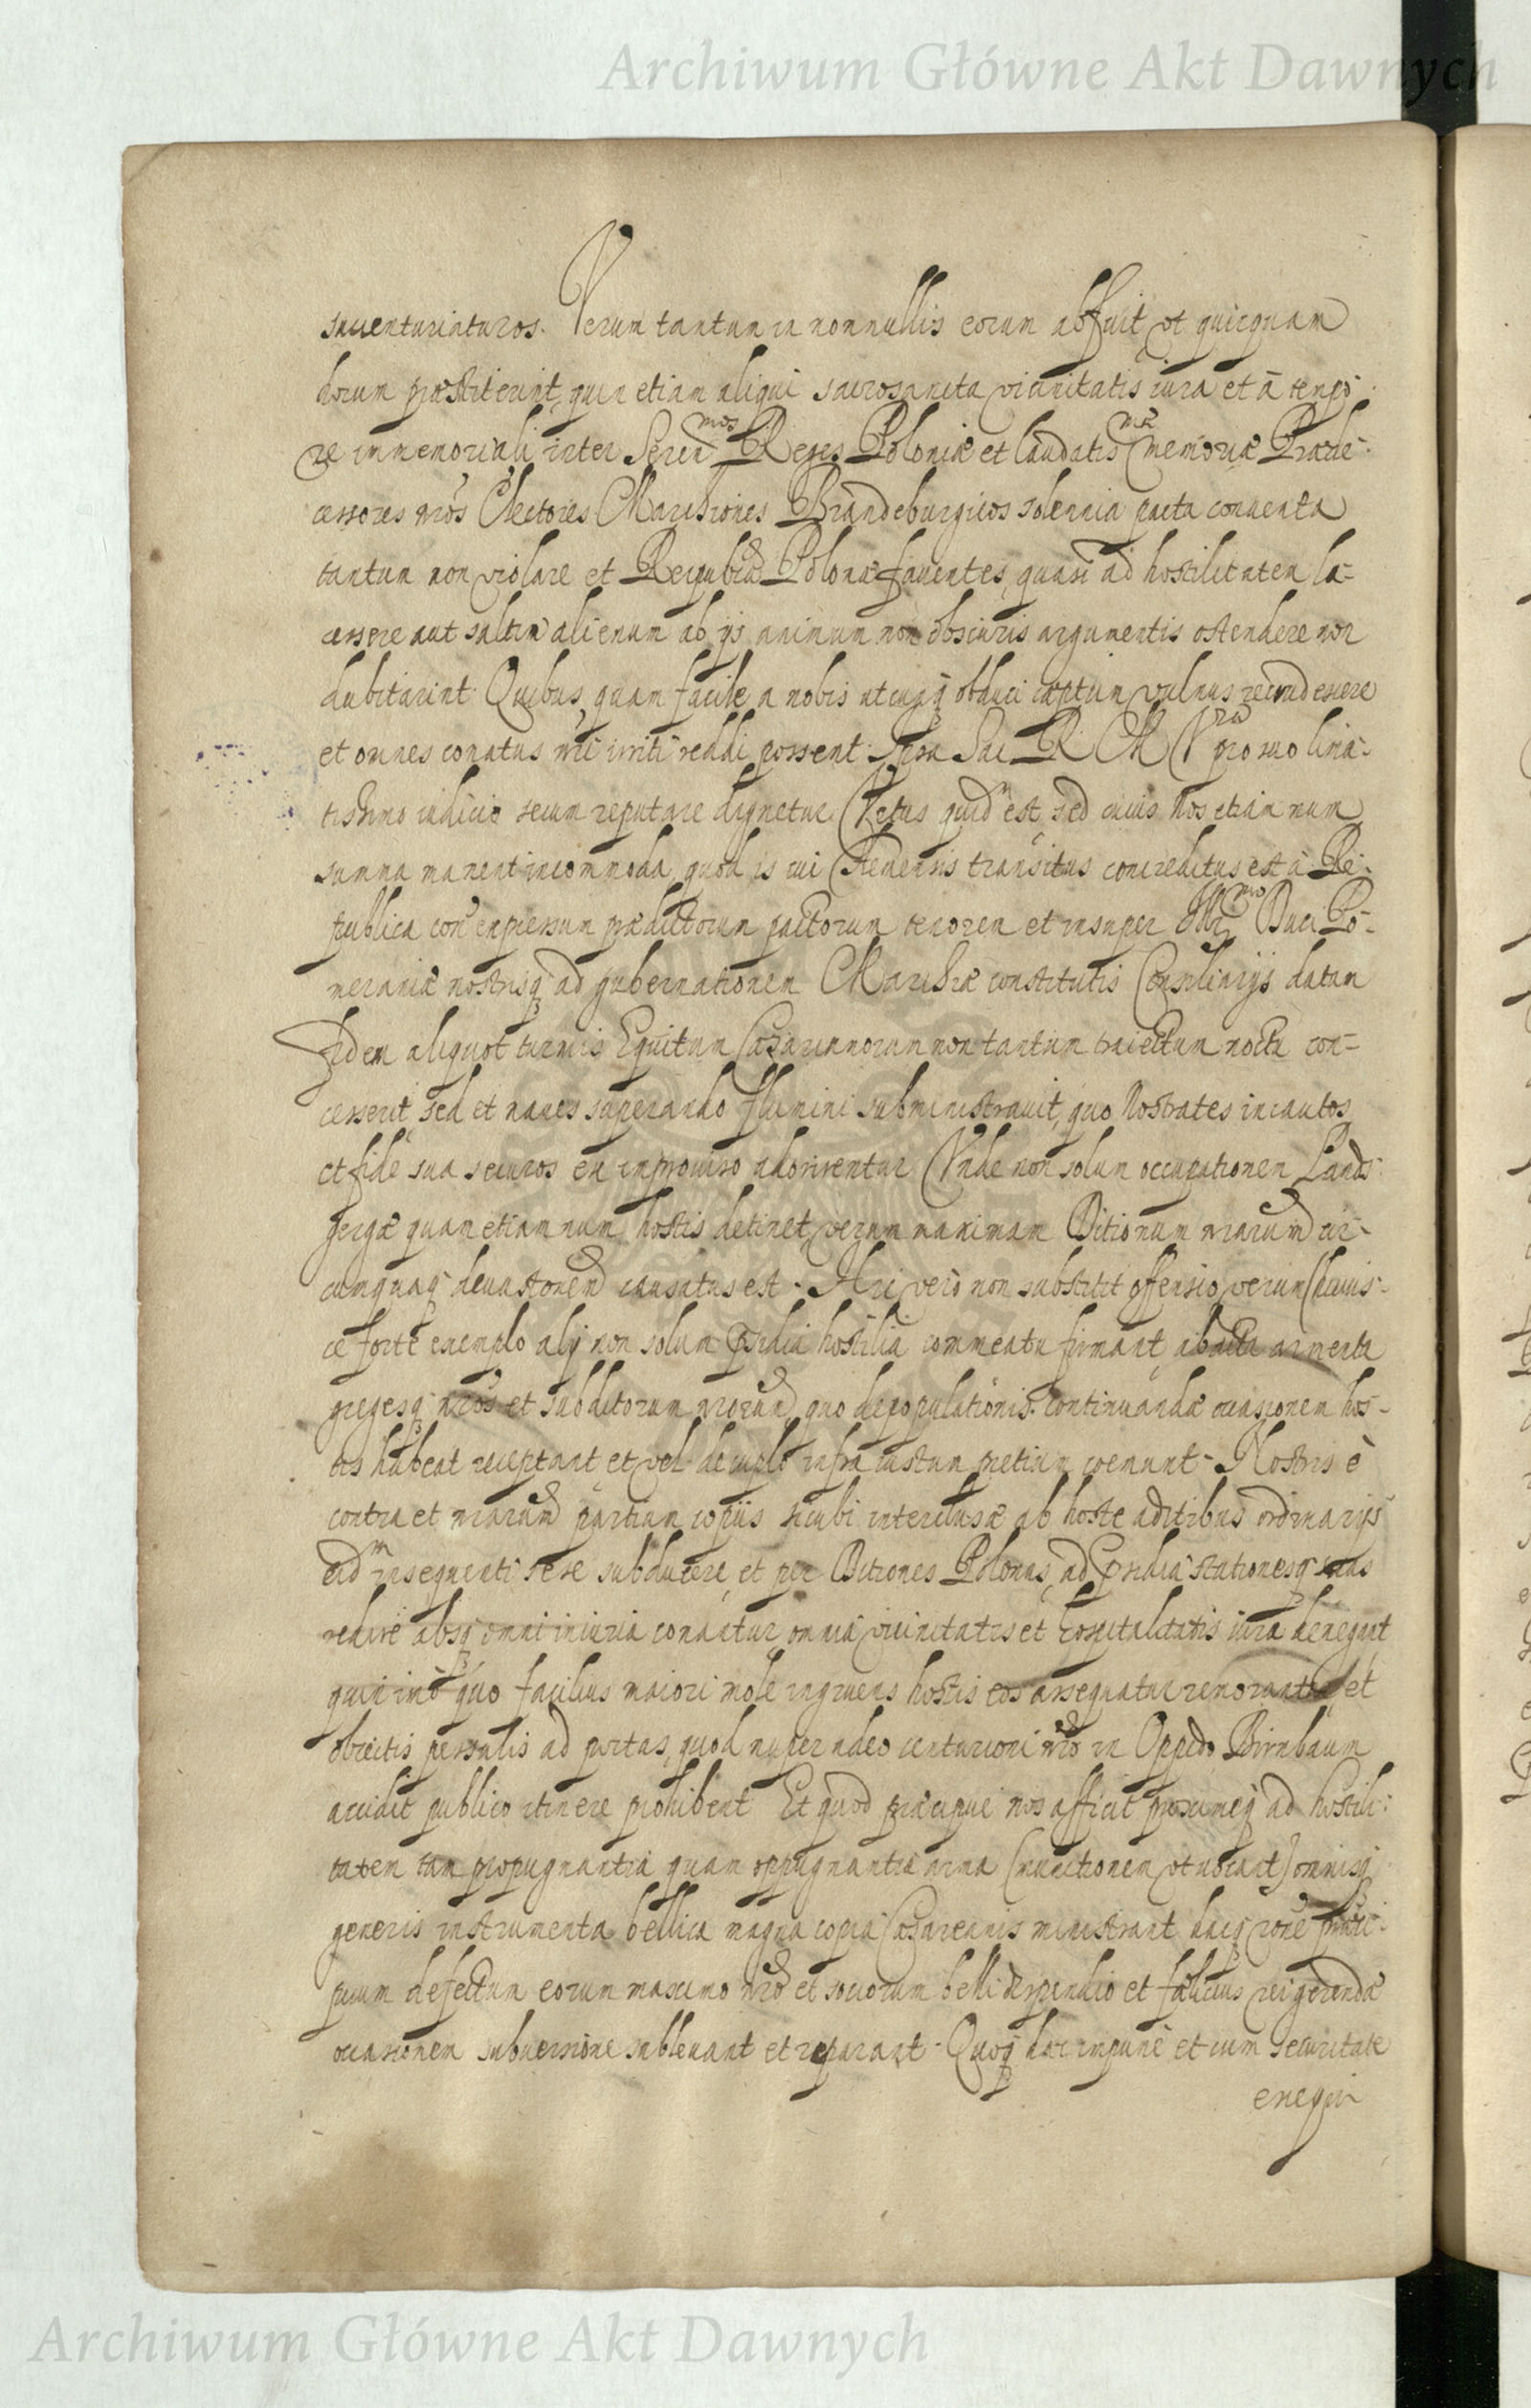 Archiwum Główne Akt Dawnych
Verum tantum a nonnullis eorum abfuit ut quicquam
horum præstiterint, quin etiam aliqui sacrosancta vicinitatis iura et à tempo-
re immemoriali inter Seren^mos Reges Poloniæ et laudatis^mæ memoriæ Præde-
cessores nros Electores Marchiones Brandeburgicos solennia pacta conuenta
tantum non violare et Reipublicæ Polonæ fauentes, quasi ad hostilitatem la-
cessere aut saltem alienum ab ijs animum non obscuris argumentis ostendere non
dubitarint. Quibus quam facile a nobis utcunq obduci cœptum vulnus recrudescere
et omnes conatus nri irriti reddi possent. Ipsa Sac R M V^ra pro suo lima-
tissimo iudicio secum reputare dignetur. Vetus quid^m est, sed cuius nos etiam num
summa manent incommoda, quod is cui transitus concreditus est à Re-
publica con expressum prædictorum pactorum tenorem et insuper Ill^mo Duci Po-
meraniæ nostrisq ad gubernationem Marchiæ constitutis Consiliarijs datam
fidem aliquot turmis Equitum Cæsareanorum non tantum traiectum noctu con-
cesserit, sed et naues superando flumini subministrauit, quo Nostrates incautos
et fide sua securos ex improuiso adorirentur. Vnde non solum occupationem Lands-
bergæ quam etiam num hostis detinet, verum maximam Ditionum nrarum cir-
cumquaq deuastonem causatus est. Hic vero non substitit offensio, verum huius-
ce forte exemplo alij non solum præsidia hostilia commeatu firmant, abacta armenta
gregesq nros et subditorum nrorum, quo depopulationis continuandæ occasionem hos-
tis habeat receptant et vel decuplo infra iustum pretium coemunt. Nostris è
contra et nrarum partium copiis sicubi interclusæ ab hoste aditibus ordinarijs
eid^m insequenti sese subducere, et per Ditiones Polonas, ad præsidia stationesq suas
redire absq omni iniuria conantur, omnia vicinitatis et hospitalitatis iura denegant
quin imo quo facilius maiori mole ingruens hostis eos assequatur remorantur et
obiectis pessulis ad portas, quod nuper adeo centurioni nro in Oppido Birnbaum
accidit publico itinere prohibent. Et quod præcipue nos afficit proximeq ad hostili-
tatem tam propugnantia quam oppugnantia arma (munitionem ut vocant) omnisq
generis instrumenta bellica magna copia Cæsareanis ministrant hacq rone præci-
puum defectum eorum maximo nro et sociorum belli dispendio et fælicius rei gerendæ
occasionem subuersione subleuant et reparant. Quoq hæc impune et cum securitate
exequi
Archiwum Główne Akt Dawnych